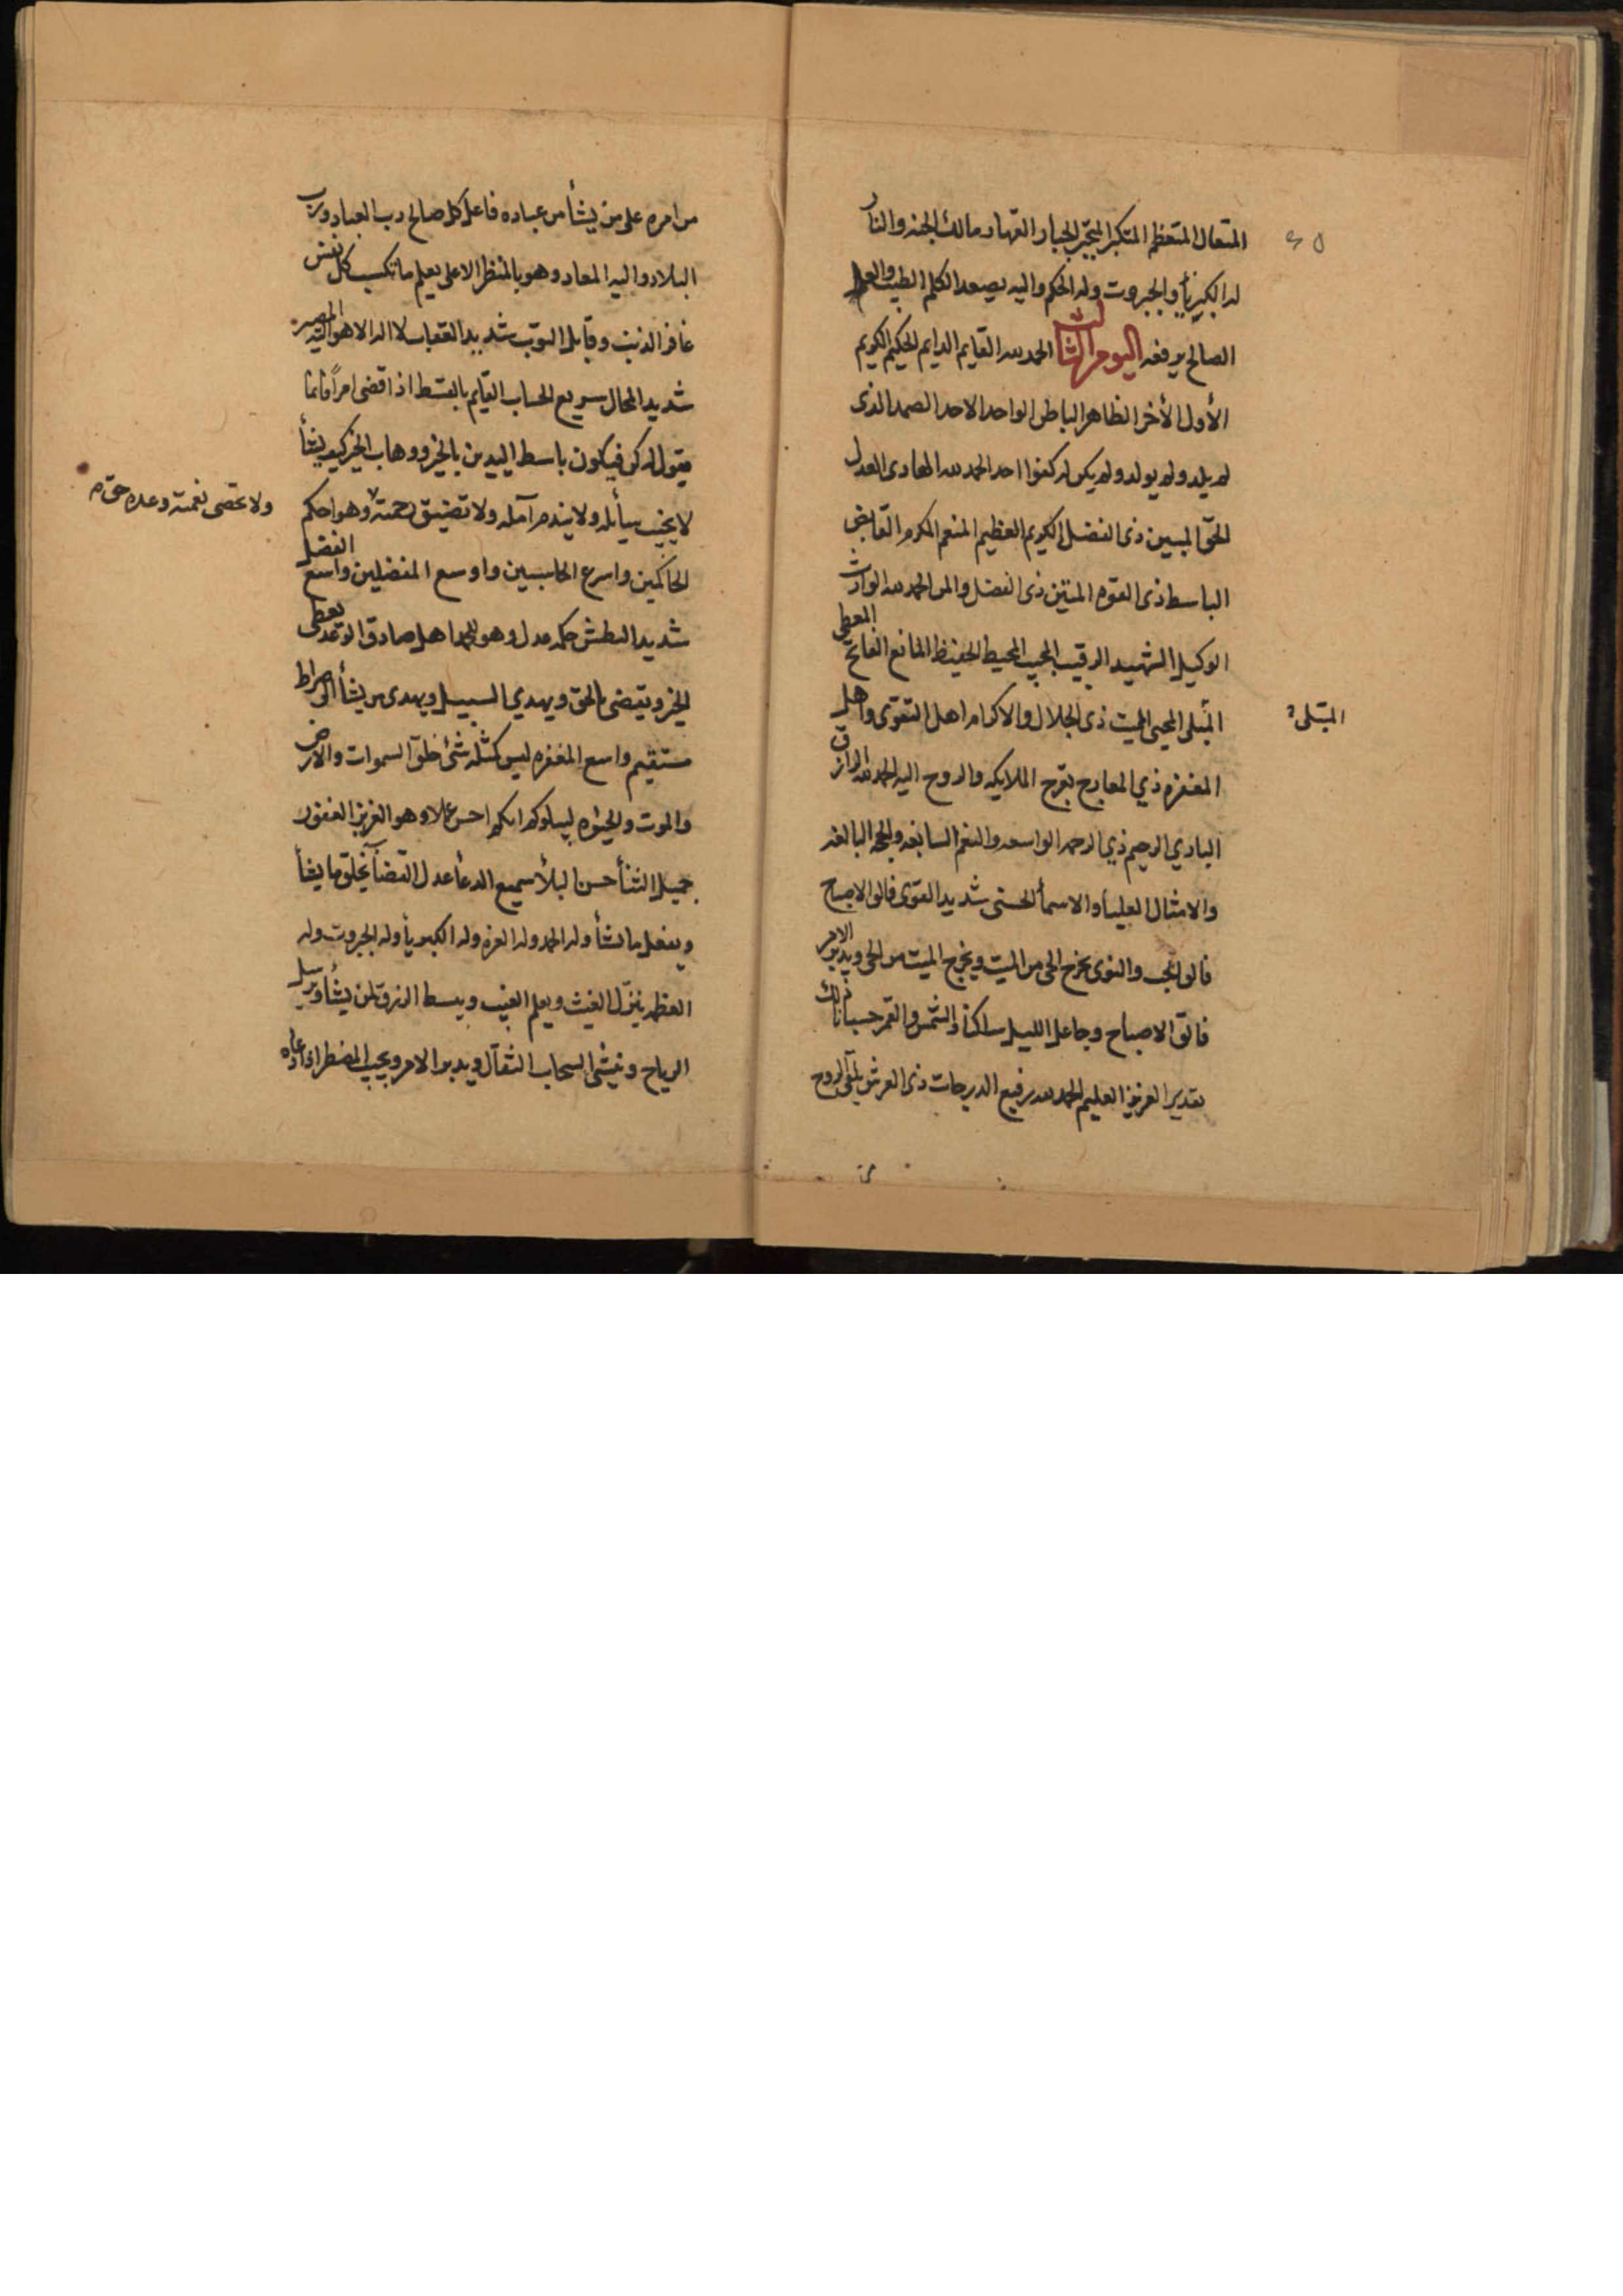 المتعال المتعظم المتكبر المتجبر الجبار القهار مالك الجنه والنار
له الكبريأ والجبروت وله الحكم واليه يصعد الكلم الطيب والعمل
الصالح يرفعه اليوم الثالث الحمد لله القايم الدايم الحكيم الكريم
الأول الأخر الظاهر الباطن الواحد الاحد الصمد الذى
لم يلد ولم يولد ولم يكن له كفوا احد الحمد لله الهادى العدل
الحق المبين ذى الفضل الكريم العظيم المنعم المكرم القابض
الباسط ذى القوه المتين ذى الفضل والمن الحمد لله الوارث
الوكيل الشهيد الرقيب المجيب المحيط الحفيظ المانع الفاتح المعطى
المبلى المحيى المميت ذى الجلال والاكرام اهل التقوى واهل
المبتلى
المغفره ذي المعارج تعرج الملايكه والروح اليه الحمد لله الرازق
الباري الرحيم ذي الرحمه الواسعه والنعم السابغه والحجه البالغه
والامثال العليا والاسمأ الحسنى شديد القوى فالق الاصباح
فالق الحب والنوى يخرج الحى من الميت ويخرج الميت من الحى ويدبر الامر
فالق الاصباح وجاعل الليل ساكنا والشمس والقمر حسبانا ذلك
تقدير العزيز العليم الحمد لله رفيع الدرجات ذى العرش يلقى الروح
من امره على من يشأ من عباده فاعل كل صالح رب العباد ورب
البلاد واليه المعاد وهو بالمنظر الاعلى يعلم ما تكسب كل نفس
غافر الذنب وقابل التوب شديد العقاب لا اله الا هو اليه المصير
شديد المحال سريع الحساب القايم بالقسط اذا قضى امرا فانما
يقول له كن فيكون باسط اليدين بالخير ووهاب الخير كيف يشأ
لا يخيب سأيله ولا يندم آمله ولا تضيق رحمته وهو احكم
ولا تحصى نعمته وعده حق
الحاكمين واسرع الحاسبين واوسع المفضلين واسع الفضل
شديد البطش حكمه عدل وهو للحمد اهل صادق الوعد يعطى
الخير ويقضى بالحق ويهدي السبيل ويهدى من يشأ الى صراط
مستقيم واسع المغفره ليس كمثله شئ خلق السموات والارض
والموت والحيوه ليبلوكم ايكم احسن عملا وهو العزيز الغفور
جميل الثنأ حسن البلأ سميع الدعأ عدل القضآ يخلق ما يشأ
ويفعل ما يشأ وله الحمد وله العزه وله الكبريأ وله الجبروت وله
العظمه ينزل الغيث ويعلم الغيب ويبسط الرزق لمن يشأ ويرسل
الرياح وينشى السحاب الثقال ويدبر الامر ويجيب المضطر اذا دعاه